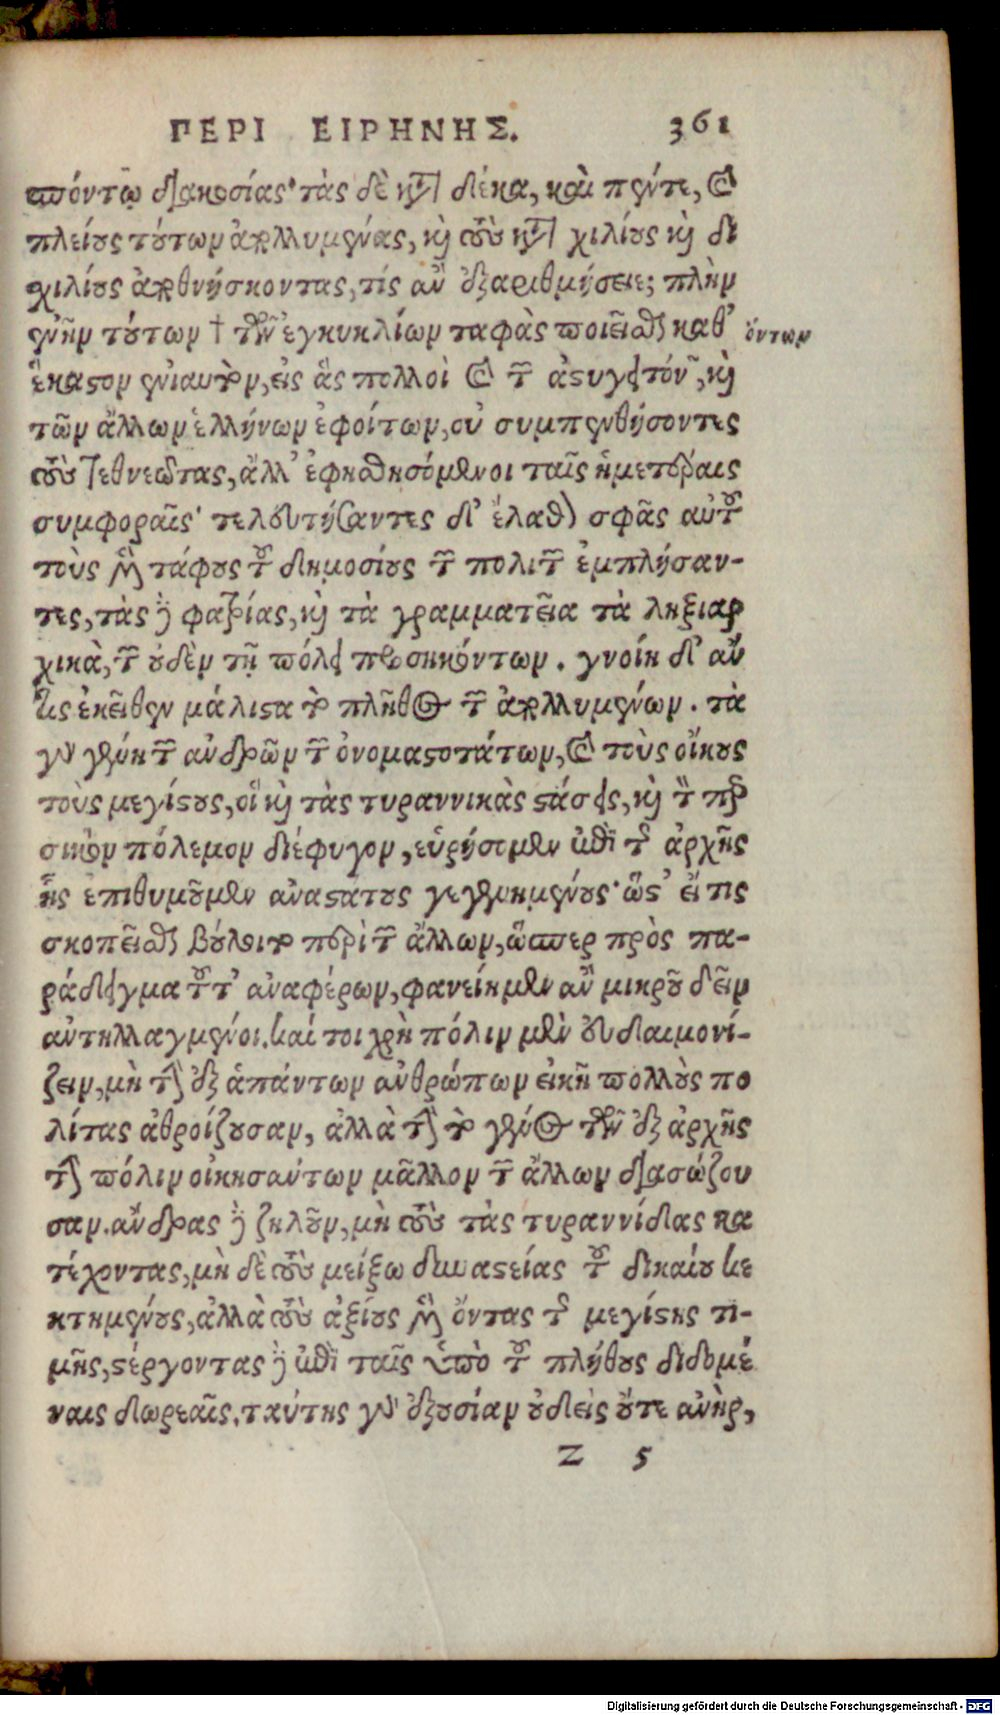 ΠΕΡΙ ΕΙΡΗΝΗΣ. 361
πόντῳ διακοσίας· τὰς δὲ κατὰ δέκα, καὶ πέντε, καὶ
πλείους τούτων ἀπολλυμένας, καὶ τοὺς κατὰ χιλίους καὶ δι
χιλίους ἀποθνήσκοντας, τίς ἂν ἐξαριθμήσειε; πλὴν
ἓν ἦν τούτων † τῶν ἐγκυκλίων ταφὰς ποιεῖσθαι καθ' ὄντων
ἕκαστον ἐνιαυτὸν, εἰς ἃς πολλοὶ καὶ τῶν ἀστυγειτόνων, καὶ
τῶν ἄλλων ἑλλήνων ἐφοίτων, οὐ συμπενθήσοντες
τοὺς τεθνεῶτας, ἀλλ' ἐφησθησόμενοι ταῖς ἡμετέραις
συμφοραῖς· τελευτήσαντες δ' ἔλαθον σφᾶς αὐτοὺς
τοὺς μὲν τάφους τοὺς δημοσίους τῶν πολιτῶν ἐμπλήσαν-
τες, τὰς δὲ φατρίας, καὶ τὰ γραμματεῖα τὰ ληξιαρ
χικὰ, τῶν οὐδὲν τῇ πόλει προσηκόντων. γνοίη δ' ἄν
τις ἐκεῖθεν μάλιστα τὸ πλῆθος τῶν ἀπολλυμένων. τὰ
γὰρ γένη τῶν ἀνδρῶν τῶν ὀνομαστοτάτων, καὶ τοὺς οἴκους
τοὺς μεγίστους, οἳ καὶ τὰς τυραννικὰς στάσεις, καὶ τὸν περ
σικὸν πόλεμον διέφυγον, εὑρήσομεν ἐπὶ τῆς ἀρχῆς
ἧς ἐπιθυμοῦμεν ἀναστάτους γεγενημένους· ὥστ' εἴ τις
σκοπεῖσθαι βούλοιτο περὶ τῶν ἄλλων, ὥσπερ πρὸς πα-
ράδειγμα τοῦτ' ἀναφέρων, φανείημεν ἂν μικροῦ δεῖν
ἀντηλλαγμένοι. καί τοι χρὴ πόλιν μὲν εὐδαιμονί-
ζειν, μὴ τὴν ἐξ ἁπάντων ἀνθρώπων εἰκῆ πολλοὺς πο
λίτας ἀθροίζουσαν, ἀλλὰ τὴν τὸ γένος τῶν ἐξ ἀρχῆς
τὴν πόλιν οἰκησάντων μᾶλλον τῶν ἄλλων διασώζου
σαν. ἄνδρας δὲ ζηλοῦν, μὴ τοὺς τὰς τυραννίδας κα
τέχοντας, μὴ δὲ τοὺς μείζω δυναστείας τοῦ δικαίου κε
κτημένους, ἀλλὰ τοὺς ἀξίους μὲν ὄντας τῆς μεγίστης τι-
μῆς, στέργοντας δὲ ἐπὶ ταῖς ὑπὸ τοῦ πλήθους διδομέ
ναις δωρεαῖς. ταύτης γὰρ ἐξουσίαν οὐδεὶς οὔτε ἀνὴρ,
Z 5
Digitalisierung gefördert durch die Deutsche Forschungsgemeinschaft - DFG